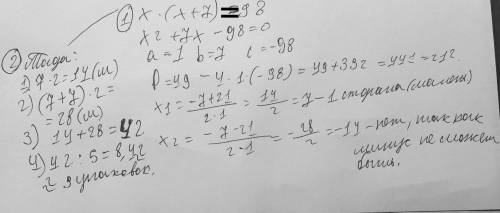 ① x · (x + 7) = 98
x2 + 7x - 98 = 0
a = 1 b = 7 c = -98
D = 49 - 4 · 1 · (-98) = 49 + 392 = 441 = 212
x1 = (-7+21)/(2·1) = 14/2 = 7 - 1 сторона
x2 = (-7-21)/(2·1) = -28/2 = -14 - нет, так как
минус не может
быть.
② Тогда:
1) 7·2=14 (м)
2) (7+7)·2=
=28 (м)
3) 14+28=42
4) 42:5=8,42
9 упаковок.